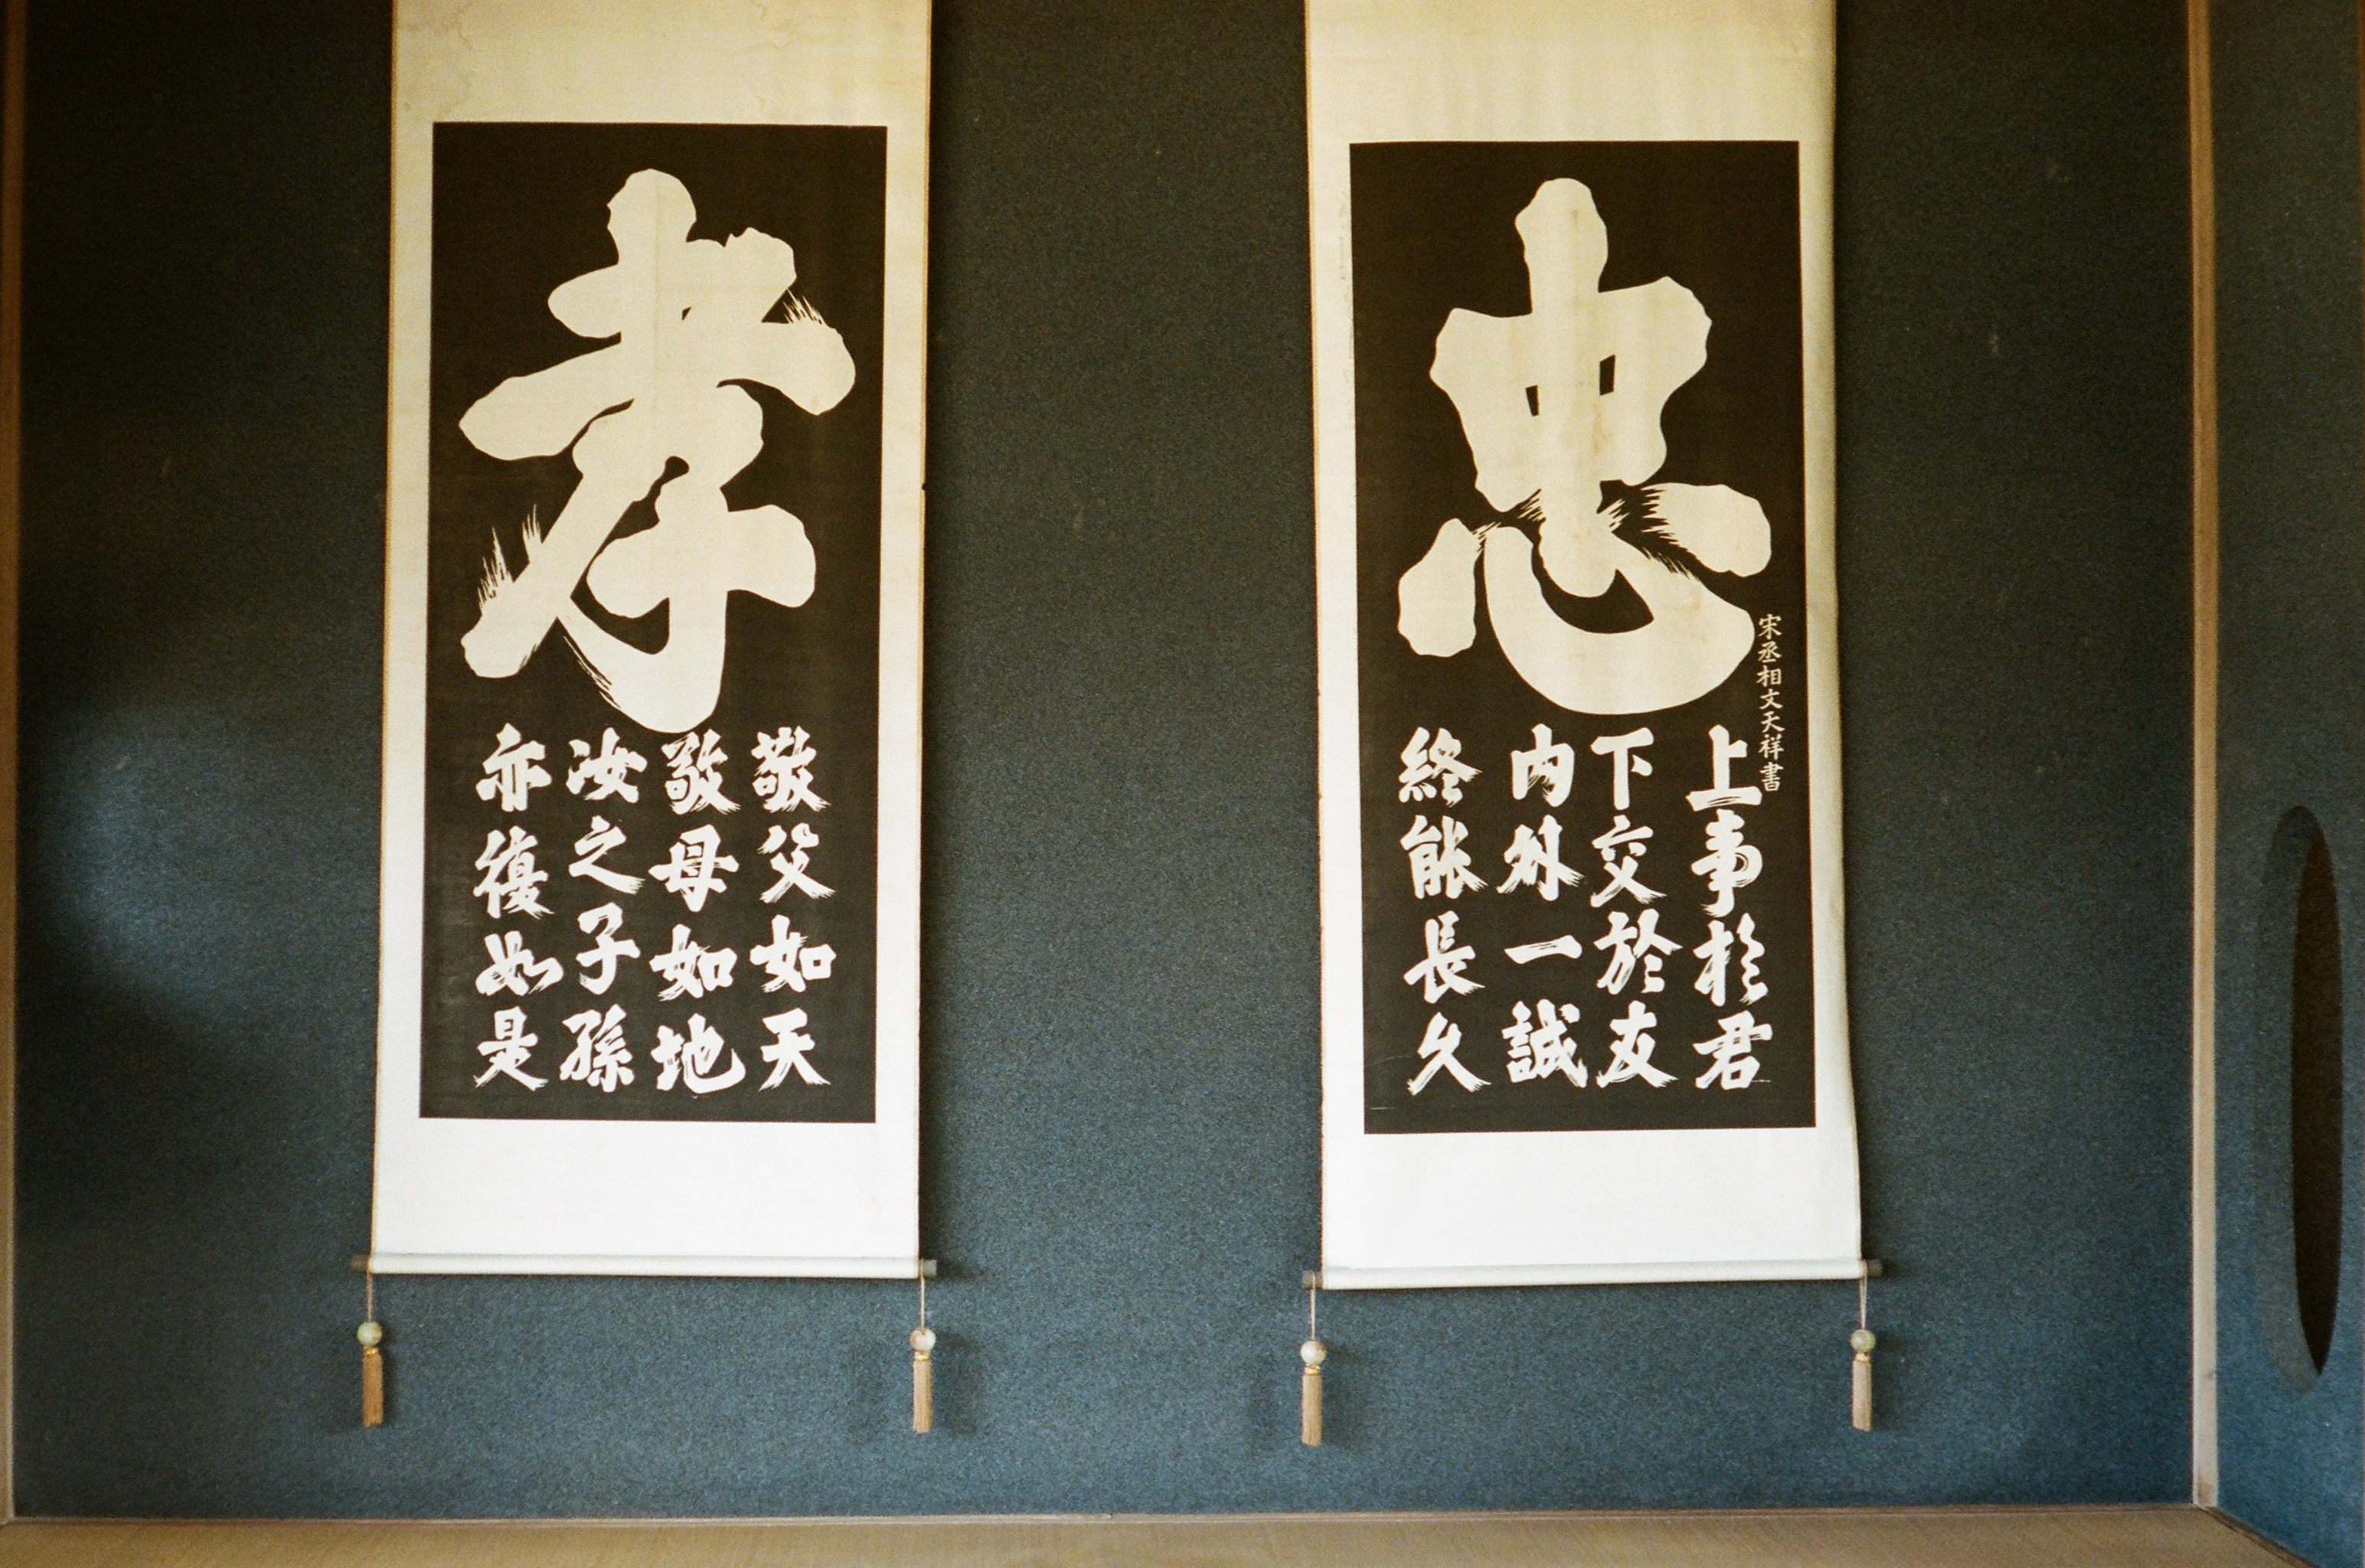 忠
宋丞相文天祥書
上事於君
下交於友
内外一誠
終能長久
孝
敬父如天
敬母如地
汝之子孫
亦復如是